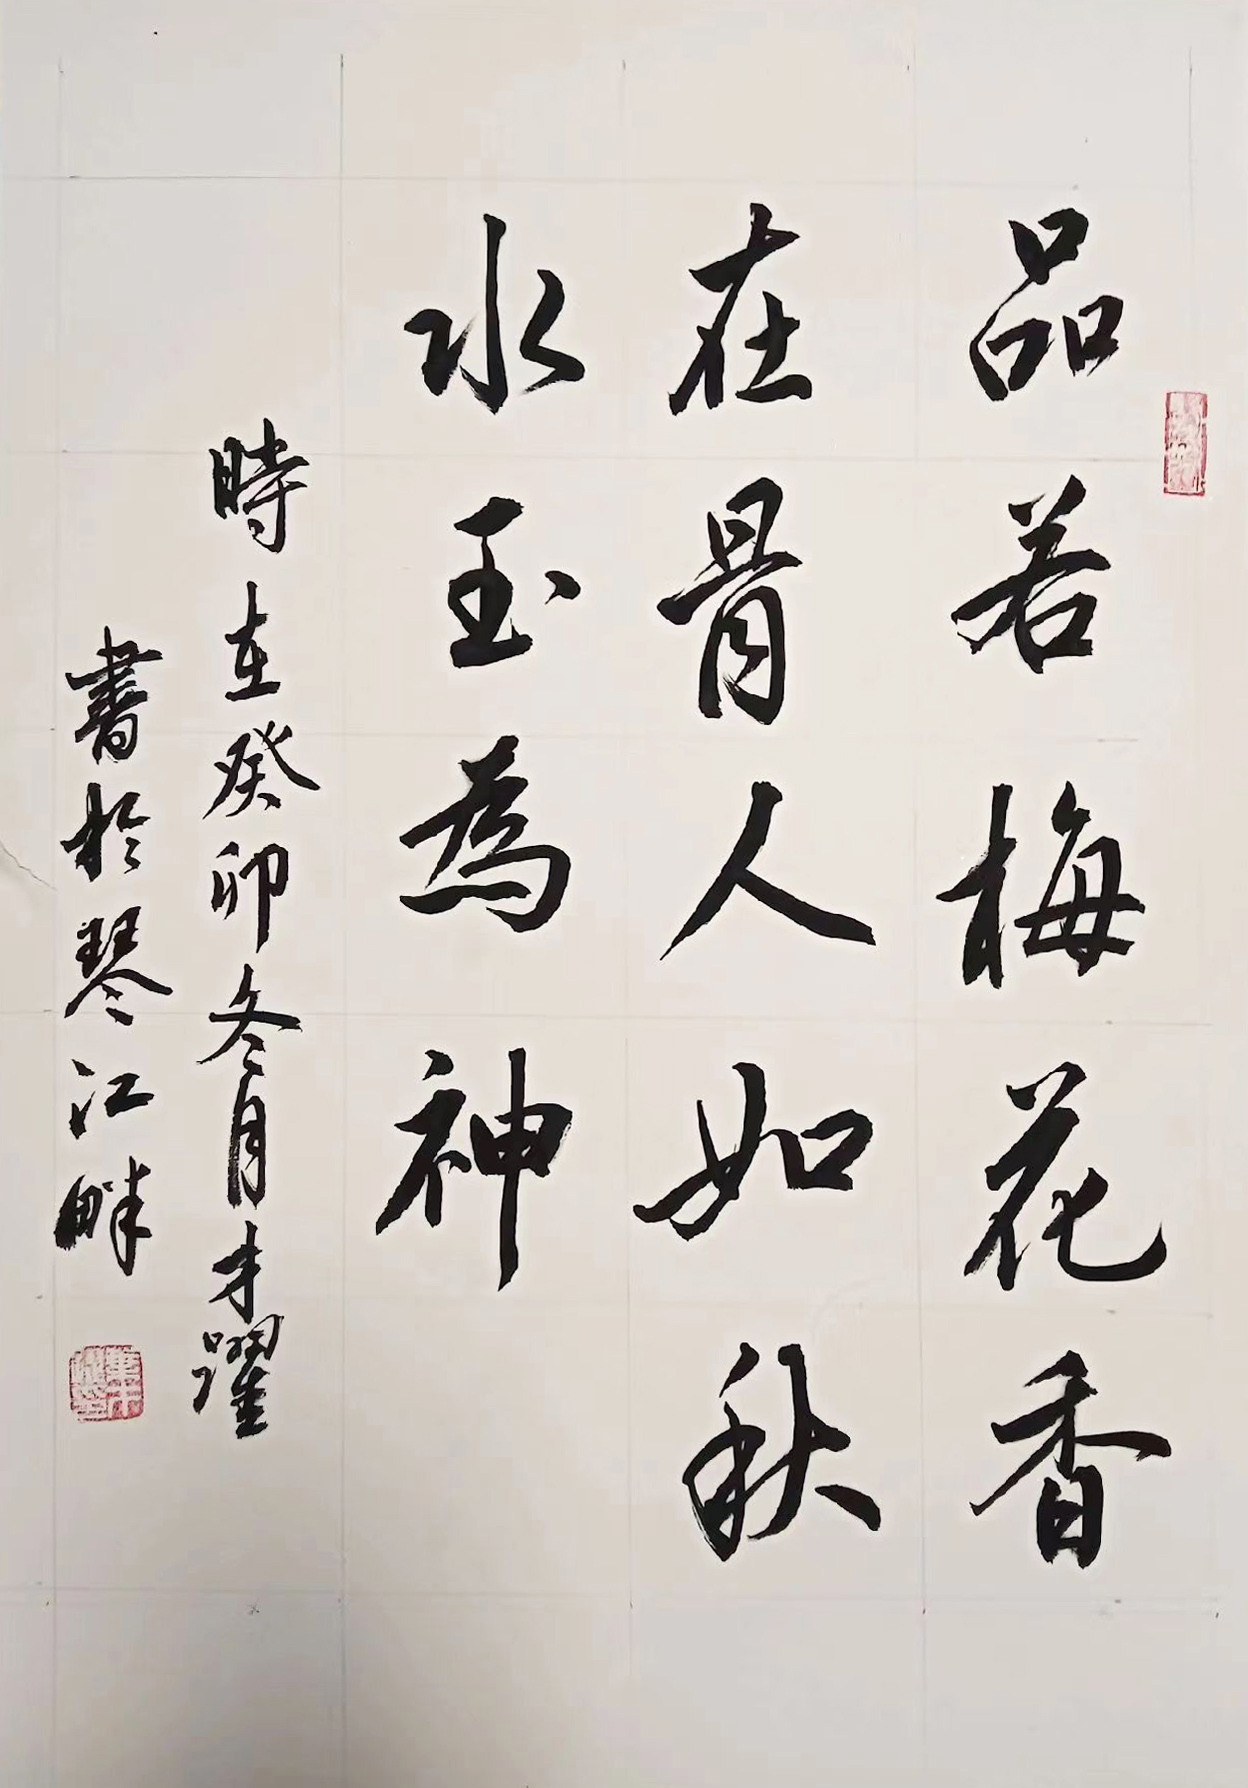 品若梅花香
在骨人如秋
水玉為神
時在癸卯冬月才躍
書於琴江畔